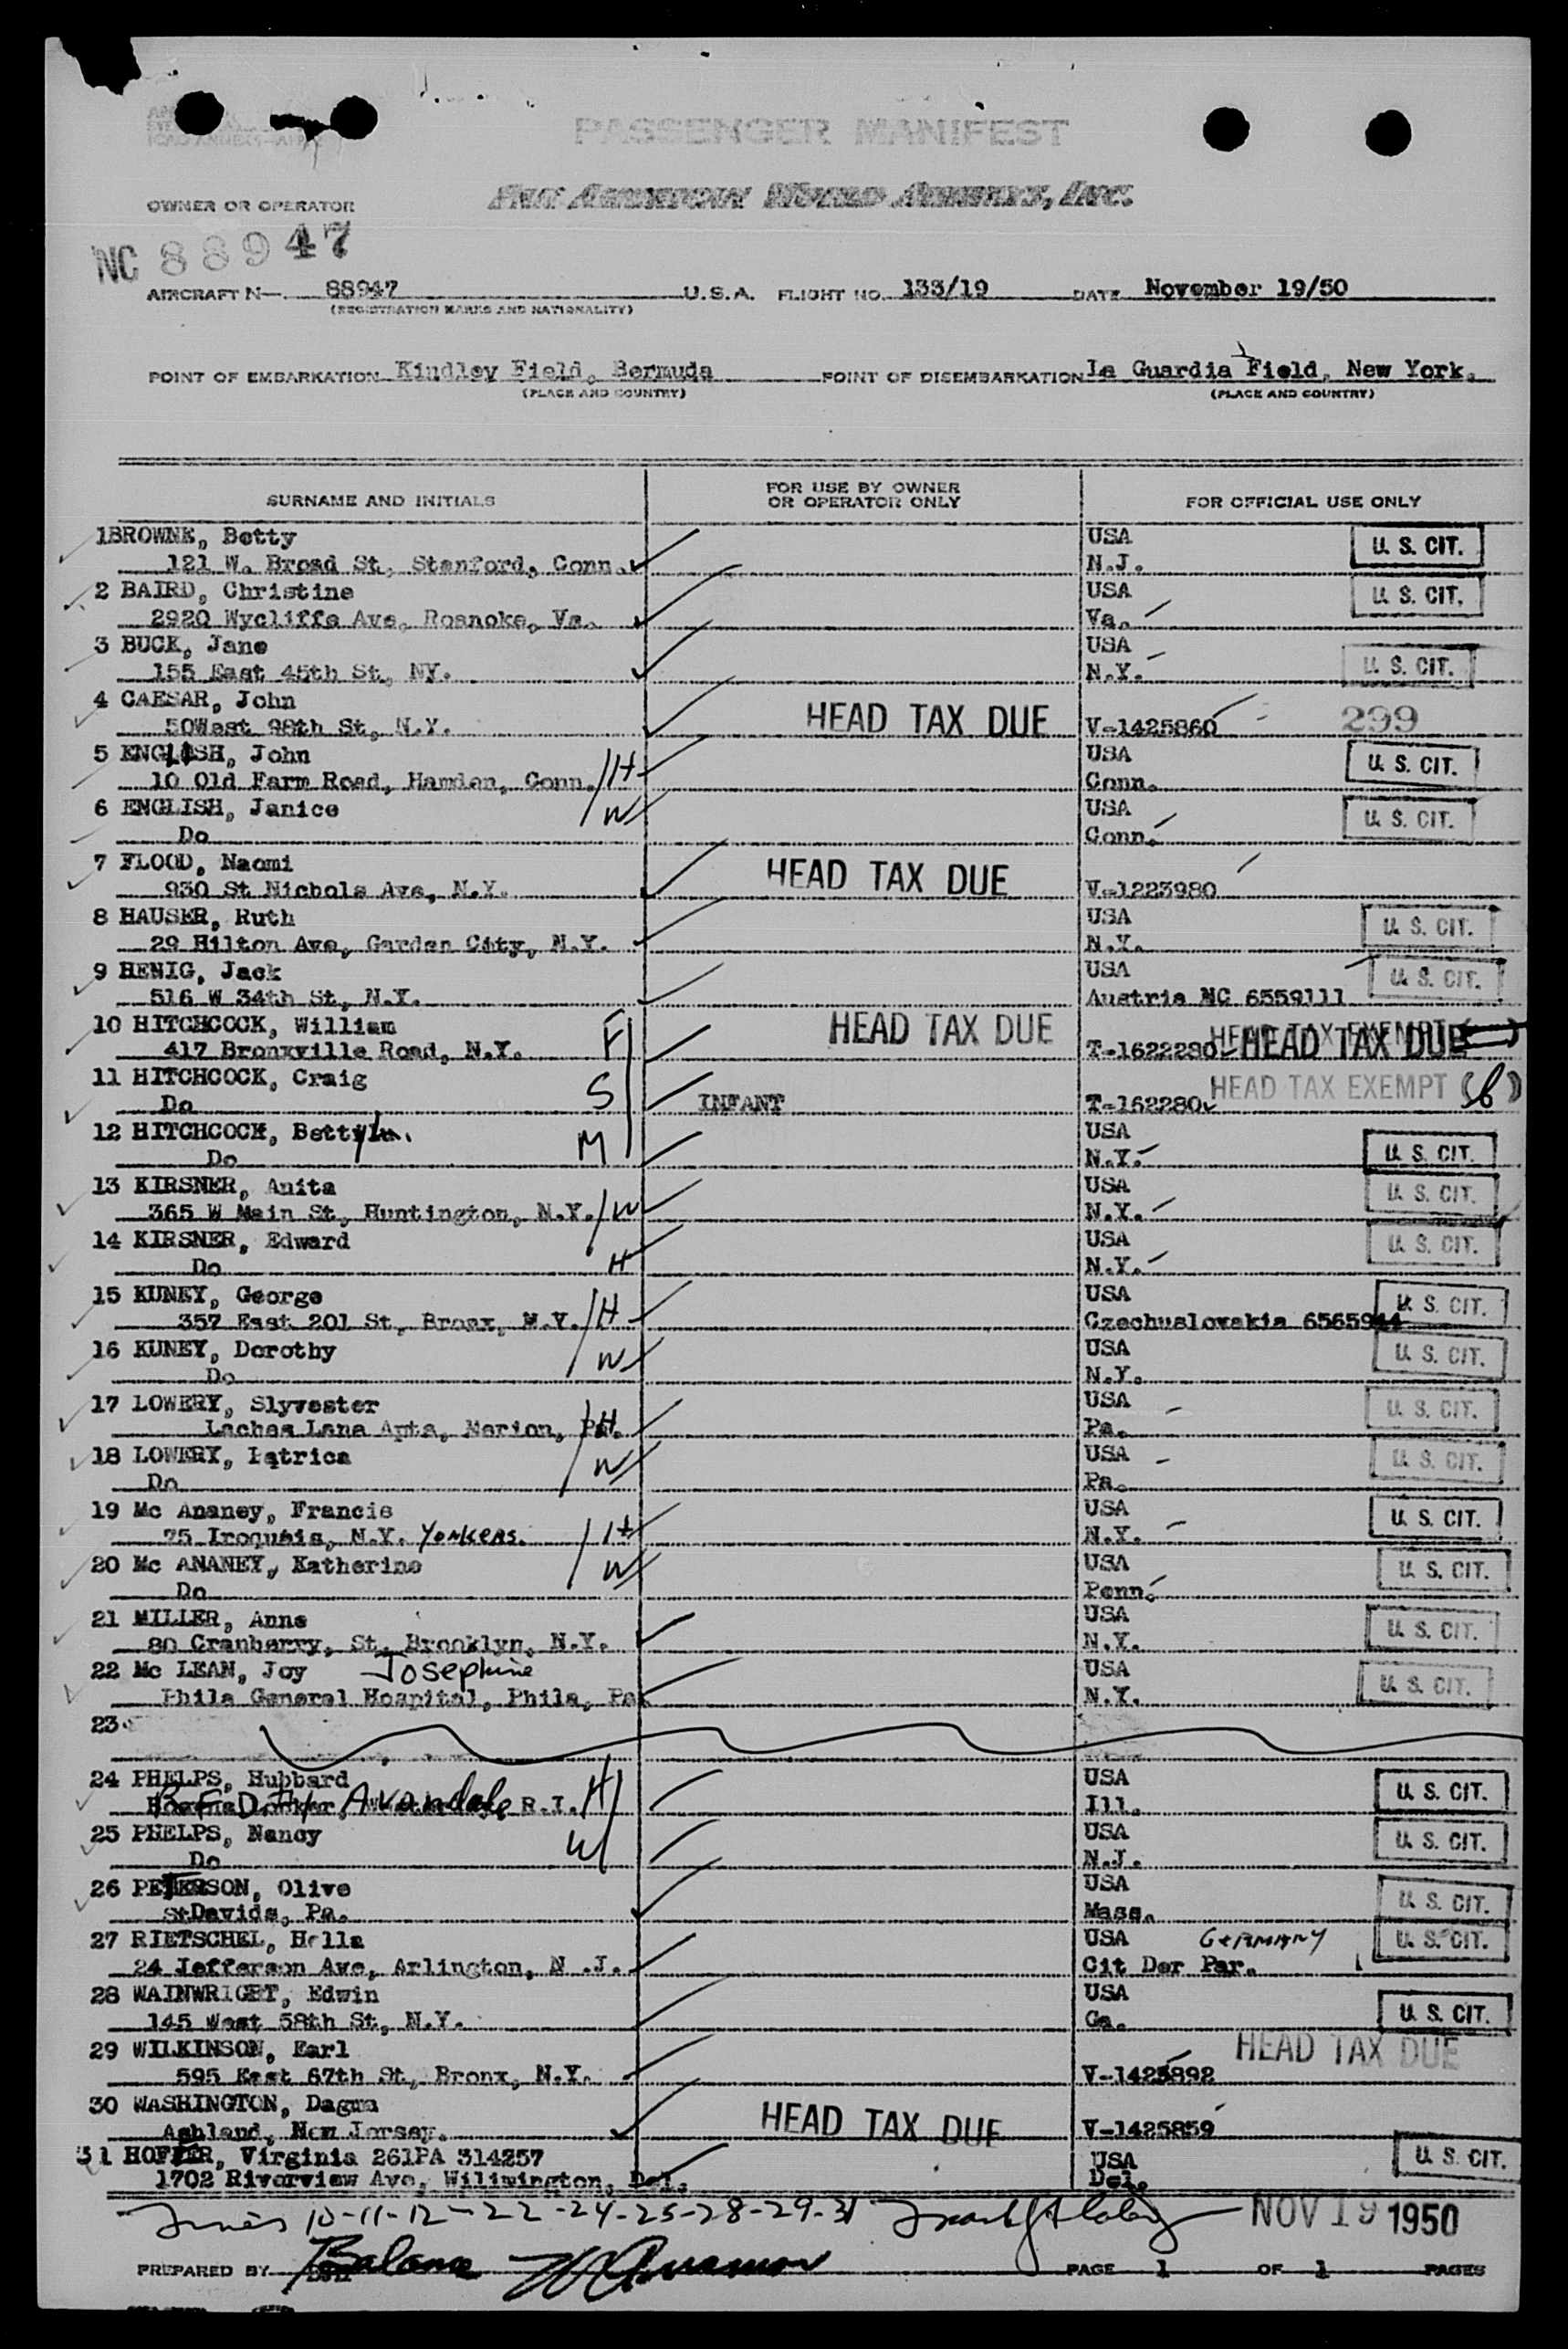 PASSENGER MANIFEST
PAN AMERICAN WORLD AIRWAYS, INC.
OWNER OR OPERATOR
NC 88947
AIRCRAFT N— 88947 U.S.A. FLIGHT NO. 133/19 DATE November 19/50
(REGISTRATION MARKS AND NATIONALITY)
POINT OF EMBARKATION Kindley Field, Bermuda POINT OF DISEMBARKATION La Guardia Field, New York.
(PLACE AND COUNTRY) (PLACE AND COUNTRY)
SURNAME AND INITIALS FOR USE BY OWNER OR OPERATOR ONLY FOR OFFICIAL USE ONLY
1BROWNE, Betty USA U. S. CIT.
121 W. Broad St, Stanford, Conn. N.J.
2 BAIRD, Christine USA U. S. CIT.
2920 Wycliffe Ave, Roanoke, Va. Va.
3 BUCK, Jane USA
155 East 45th St, NY. N.Y. U. S. CIT.
4 CAESAR, John
50West 98th St, N.Y. HEAD TAX DUE V-1425860 299
5 ENGLISH, John USA U. S. CIT.
10 Old Farm Road, Hamden, Conn. H Conn.
6 ENGLISH, Janice USA U. S. CIT.
Do W Conn.
7 FLOOD, Naomi
930 St Nichols Ave, N.Y. HEAD TAX DUE V-1223980
8 HAUSER, Ruth USA U. S. CIT.
29 Hilton Ave, Garden City, N.Y. N.Y.
9 HENIG, Jack USA U. S. CIT.
516 W 34th St, N.Y. Austria NC 6559111
10 HITCHCOCK, William F HEAD TAX DUE HEAD TAX EXEMPT
417 Bronxville Road, N.Y. T-1622280 HEAD TAX DUE
11 HITCHCOCK, Craig S HEAD TAX EXEMPT (6)
Do INFANT T-162280
12 HITCHCOCK, Betty USA
Do M N.Y. U. S. CIT.
13 KIRSNER, Anita USA U. S. CIT.
365 W Main St, Huntington, N.Y. W N.Y.
14 KIRSNER, Edward USA U. S. CIT.
Do H N.Y.
15 KUNEY, George USA U. S. CIT.
357 East 201 St, Bronx, N.Y. H Czechuslovakia 6565944
16 KUNEY, Dorothy USA U. S. CIT.
Do W N.Y.
17 LOWERY, Slyvester USA U. S. CIT.
Laches Lane Apts, Merion, Pa. H Pa.
18 LOWERY, Patrica USA U. S. CIT.
Do W Pa.
19 Mc Ananey, Francis USA U. S. CIT.
75 Iroquois, N.Y. Yonkers. H N.Y.
20 Mc ANANEY, Katherine USA U. S. CIT.
Do W Penn.
21 MILLER, Anne USA U. S. CIT.
80 Cranberry, St, Brooklyn, N.Y. N.Y.
22 Mc LEAN, Joy Josephine USA U. S. CIT.
Phila General Hospital, Phila, Pa. N.Y.
23
24 PHELPS, Hubbard H USA U. S. CIT.
Avondale R.I. Ill.
25 PHELPS, Nancy W USA U. S. CIT.
Do N.J.
26 PETERSON, Olive USA U. S. CIT.
StDavids, Pa. Mass.
27 RIETSCHEL, Hella USA GERMANY U. S. CIT.
24 Jefferson Ave, Arlington, N .J. Cit Der Par.
28 WAINWRIGHT, Edwin USA
145 West 58th St, N.Y. Ga. U. S. CIT.
29 WILKINSON, Earl HEAD TAX DUE
595 East 67th St, Bronx, N.Y. V-1425892
30 WASHINGTON, Dagma
Ashland, New Jersey. HEAD TAX DUE V-1425859
31 HOFFER, Virginia 261PA 314257 USA U. S. CIT.
1702 Riverview Ave, Wilimington, Del. Del.
10-11-12-22-24-25-28-29-31 NOV 19 1950
PREPARED BY PAGE 1 OF 1 PAGES